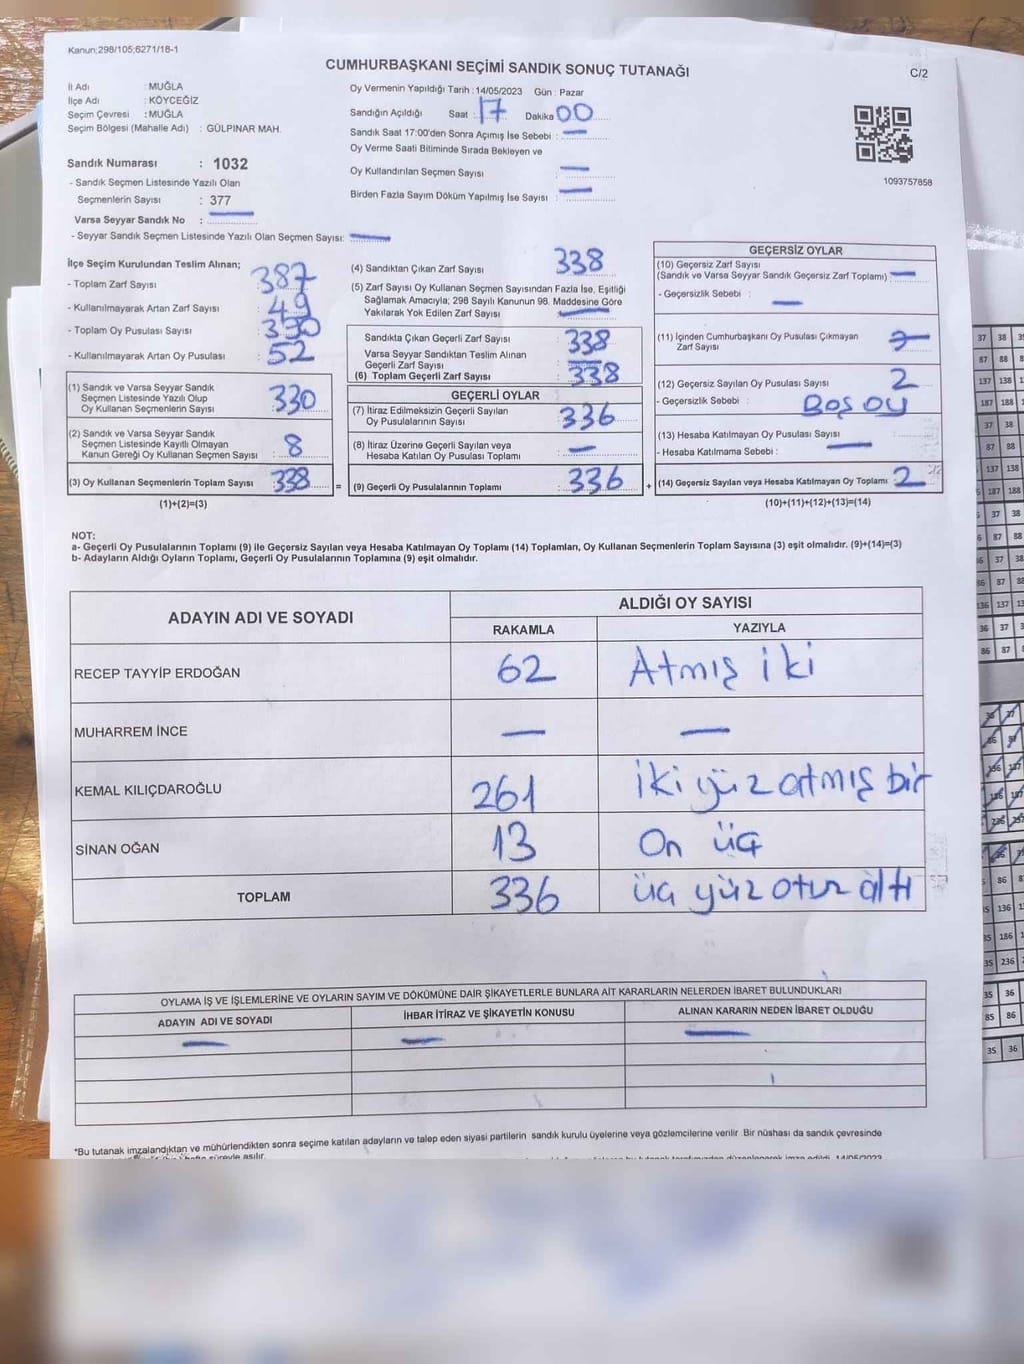 Kanun;298/105;6271/18-1
CUMHURBAŞKANI SEÇİMİ SANDIK SONUÇ TUTANAĞI
C/2
İl Adı : MUĞLA
İlçe Adı : KÖYCEĞİZ
Seçim Çevresi : MUĞLA
Seçim Bölgesi (Mahalle Adı) : GÜLPINAR MAH.
Sandık Numarası : 1032
- Sandık Seçmen Listesinde Yazılı Olan
Seçmenlerin Sayısı : 377
Varsa Seyyar Sandık No : —
- Seyyar Sandık Seçmen Listesinde Yazılı Olan Seçmen Sayısı: —
Oy Vermenin Yapıldığı Tarih : 14/05/2023 Gün : Pazar
Sandığın Açıldığı Saat : 17 Dakika 00
Sandık Saat 17:00'den Sonra Açımış İse Sebebi : —
Oy Verme Saati Bitiminde Sırada Bekleyen ve
Oy Kullandırılan Seçmen Sayısı : —
Birden Fazla Sayım Döküm Yapılmış İse Sayısı : —
1093757858
İlçe Seçim Kurulundan Teslim Alınan;
- Toplam Zarf Sayısı : 387
- Kullanılmayarak Artan Zarf Sayısı : 49
- Toplam Oy Pusulası Sayısı :
- Kullanılmayarak Artan Oy Pusulası : 52
(1) Sandık ve Varsa Seyyar Sandık
Seçmen Listesinde Yazılı Olup
Oy Kullanan Seçmenlerin Sayısı : 330
(2) Sandık ve Varsa Seyyar Sandık
Seçmen Listesinde Kayıtlı Olmayan
Kanun Gereği Oy Kullanan Seçmen Sayısı : 8
(3) Oy Kullanan Seçmenlerin Toplam Sayısı : 338 =
(1)+(2)=(3)
(4) Sandıktan Çıkan Zarf Sayısı : 338
(5) Zarf Sayısı Oy Kullanan Seçmen Sayısından Fazla İse, Eşitliği
Sağlamak Amacıyla; 298 Sayılı Kanunun 98. Maddesine Göre
Yakılarak Yok Edilen Zarf Sayısı : —
Sandıkta Çıkan Geçerli Zarf Sayısı : 338
Varsa Seyyar Sandıktan Teslim Alınan
Geçerli Zarf Sayısı : —
(6) Toplam Geçerli Zarf Sayısı : 338
GEÇERLİ OYLAR
(7) İtiraz Edilmeksizin Geçerli Sayılan
Oy Pusulalarının Sayısı : 336
(8) İtiraz Üzerine Geçerli Sayılan veya
Hesaba Katılan Oy Pusulası Toplamı : —
(9) Geçerli Oy Pusulalarının Toplamı : 336 +
GEÇERSİZ OYLAR
(10) Geçersiz Zarf Sayısı
(Sandık ve Varsa Seyyar Sandık Geçersiz Zarf Toplamı) : —
- Geçersizlik Sebebi : —
(11) İçinden Cumhurbaşkanı Oy Pusulası Çıkmayan
Zarf Sayısı :
(12) Geçersiz Sayılan Oy Pusulası Sayısı : 2
- Geçersizlik Sebebi : BOŞ OY
(13) Hesaba Katılmayan Oy Pusulası Sayısı : —
- Hesaba Katılmama Sebebi :
(14) Geçersiz Sayılan veya Hesaba Katılmayan Oy Toplamı : 2
(10)+(11)+(12)+(13)=(14)
NOT:
a- Geçerli Oy Pusulalarının Toplamı (9) ile Geçersiz Sayılan veya Hesaba Katılmayan Oy Toplamı (14) Toplamları, Oy Kullanan Seçmenlerin Toplam Sayısına (3) eşit olmalıdır. (9)+(14)=(3)
b- Adayların Aldığı Oyların Toplamı, Geçerli Oy Pusulalarının Toplamına (9) eşit olmalıdır.
ADAYIN ADI VE SOYADI ALDIĞI OY SAYISI
RAKAMLA YAZIYLA
RECEP TAYYİP ERDOĞAN 62 Atmış iki
MUHARREM İNCE — —
KEMAL KILIÇDAROĞLU 261 iki yüz atmış bir
SİNAN OĞAN 13 On üç
TOPLAM 336 üç yüz otuz altı
OYLAMA İŞ VE İŞLEMLERİNE VE OYLARIN SAYIM VE DÖKÜMÜNE DAİR ŞİKAYETLERLE BUNLARA AİT KARARLARIN NELERDEN İBARET BULUNDUKLARI
ADAYIN ADI VE SOYADI İHBAR İTİRAZ VE ŞİKAYETİN KONUSU ALINAN KARARIN NEDEN İBARET OLDUĞU
— — —
*Bu tutanak imzalandıktan ve mühürlendikten sonra seçime katılan adayların ve talep eden siyasi partilerin sandık kurulu üyelerine veya gözlemcilerine verilir. Bir nüshası da sandık çevresinde